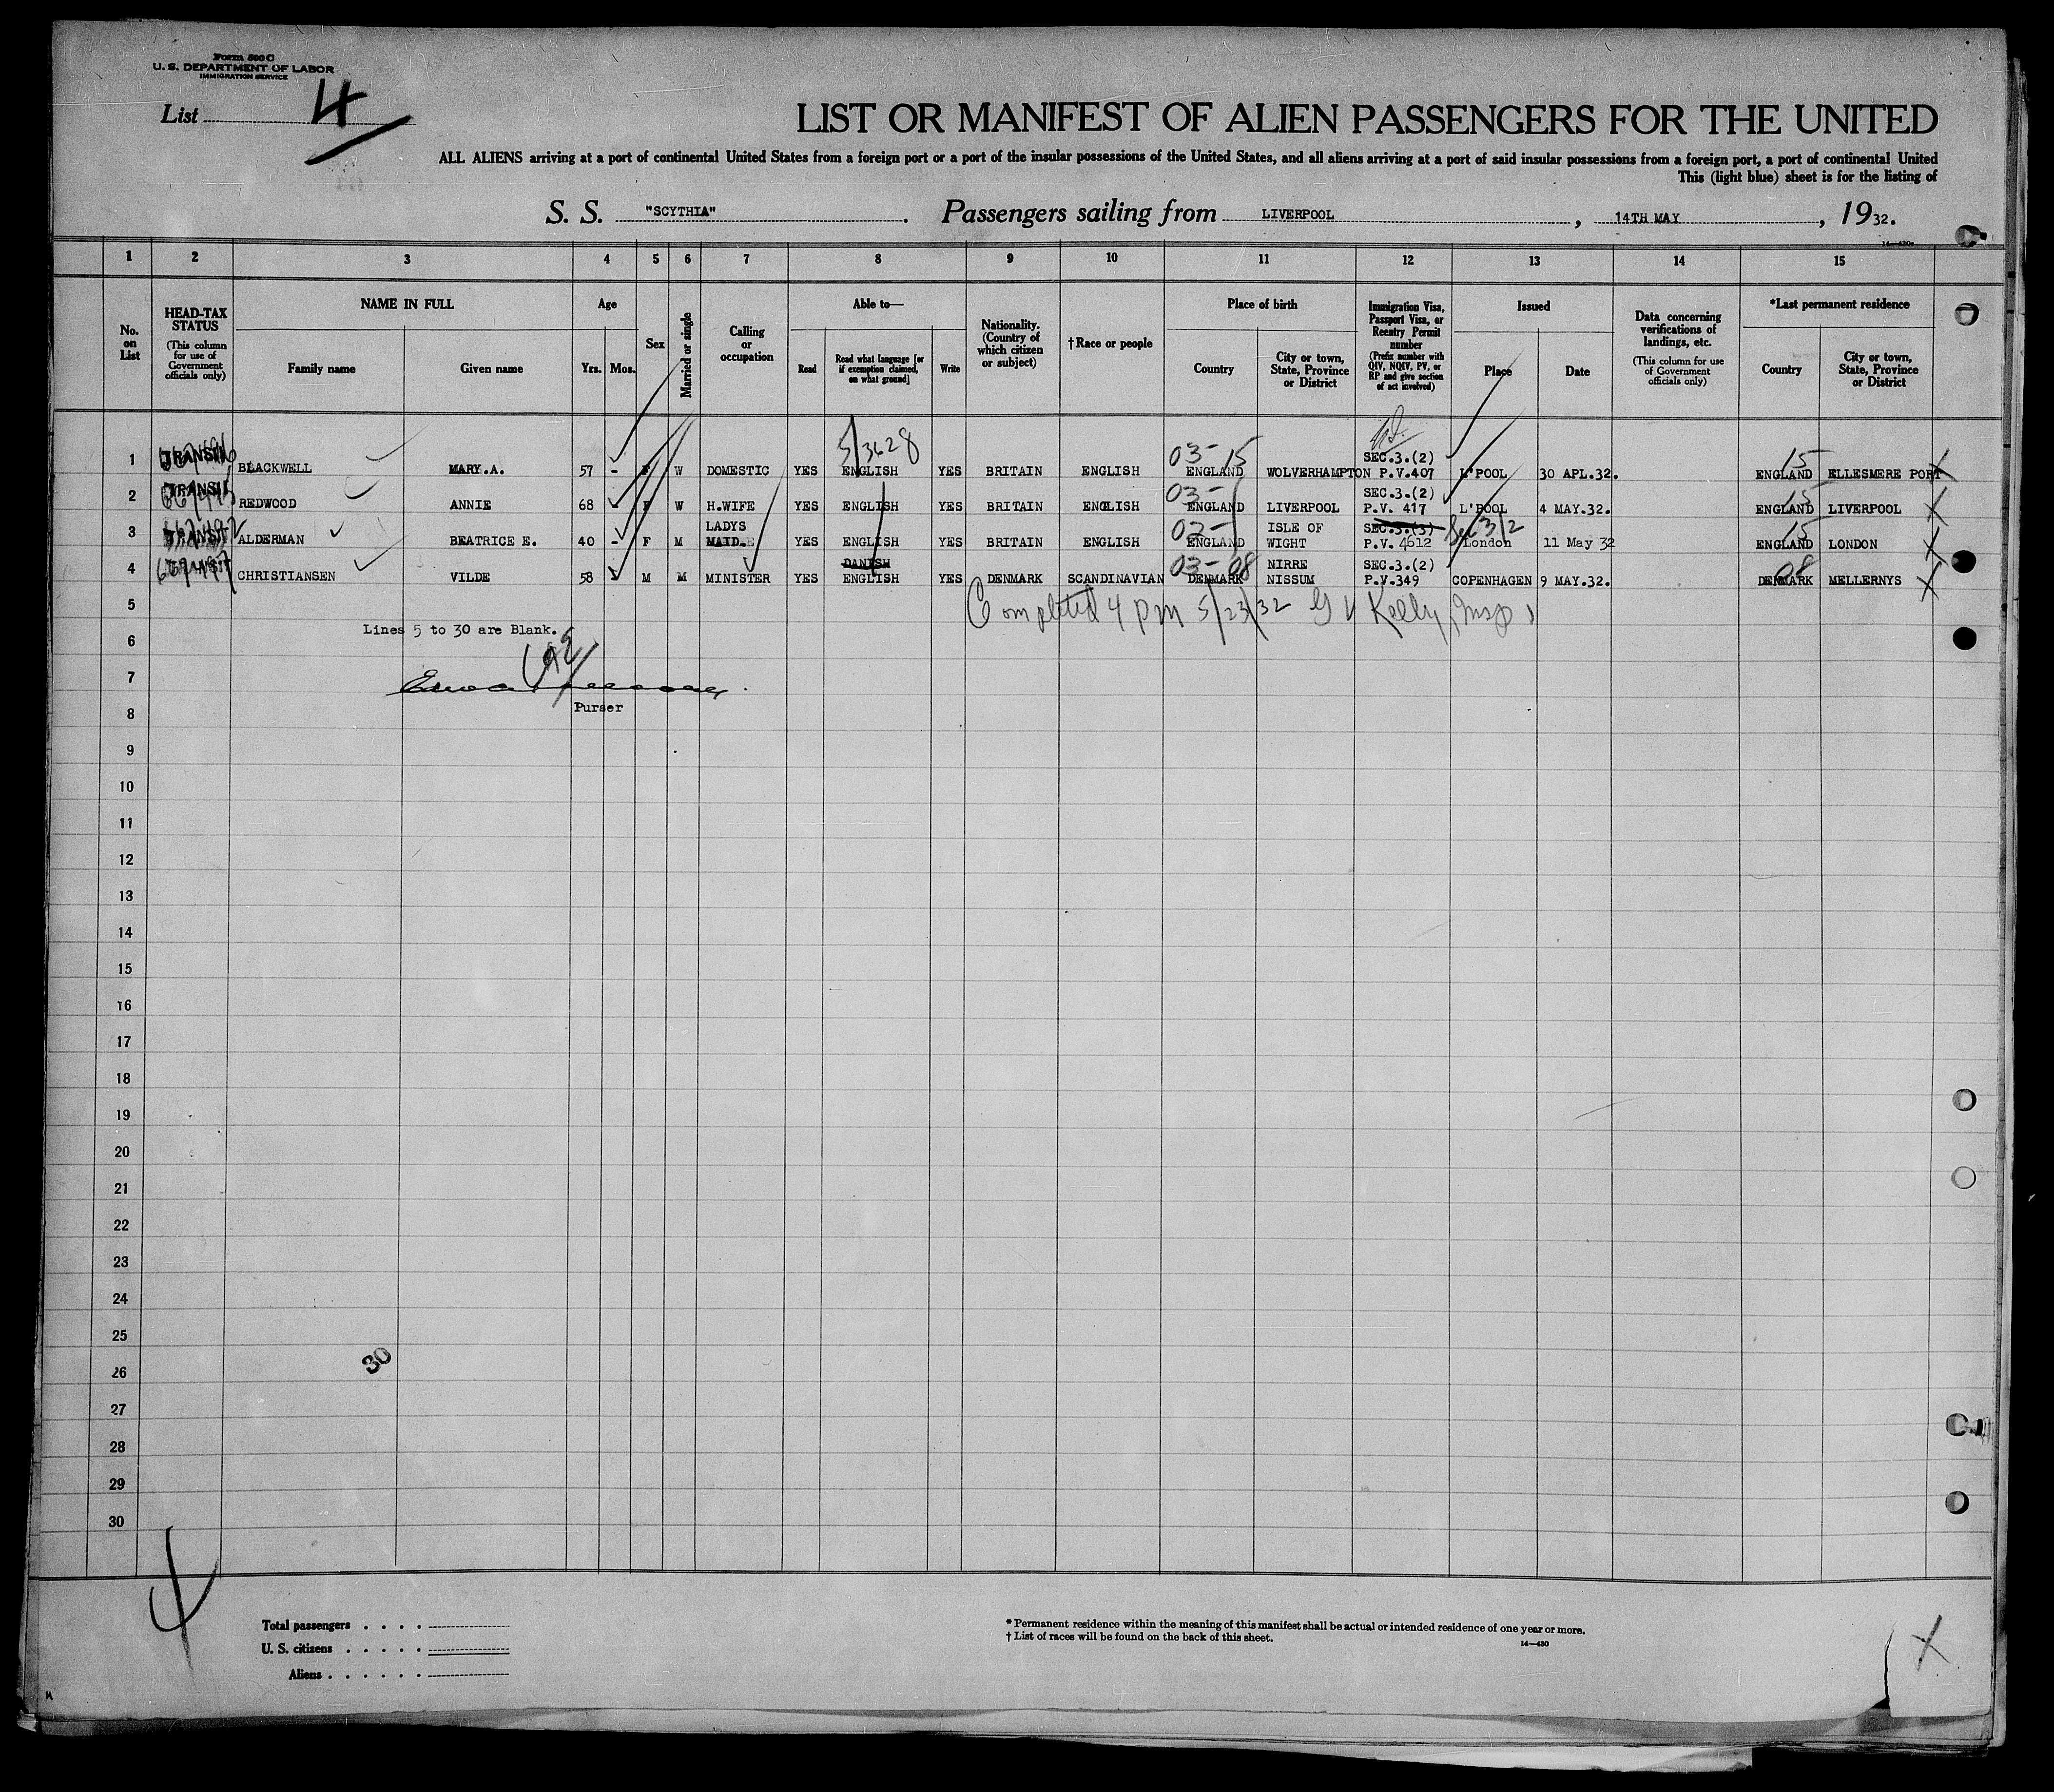 Form 500 C
U. S. DEPARTMENT OF LABOR
IMMIGRATION SERVICE
List 4
LIST OR MANIFEST OF ALIEN PASSENGERS FOR THE UNITED
ALL ALIENS arriving at a port of continental United States from a foreign port or a port of the insular possessions of the United States, and all aliens arriving at a port of said insular possessions from a foreign port, a port of continental United
This (light blue) sheet is for the listing of
S. S. "SCYTHIA". Passengers sailing from LIVERPOOL, 14TH MAY, 1932.
1 2 3 4 5 6 7 8 9 10 11 12 13 14 15
No. on List
HEAD-TAX STATUS (This column for use of Government officials only)
NAME IN FULL
Family name
Given name
Age
Yrs. Mos.
Sex
Married or single
Calling or occupation
Able to—
Read
Read what language [or if exemption claimed, on what ground]
Write
Nationality. (Country of which citizen or subject)
†Race or people
Place of birth
Country
City or town, State, Province or District
Immigration Visa, Passport Visa, or Reentry Permit number (Prefix number with QIV, NQIV, PV, or RP and give section of act involved)
Issued
Place
Date
Data concerning verifications of landings, etc. (This column for use of Government officials only)
*Last permanent residence
Country
City or town, State, Province or District
5/3628 03-15 SEC.3.(2) 15
1 TRANSIT BLACKWELL MARY.A. 57 - F W DOMESTIC YES ENGLISH YES BRITAIN ENGLISH ENGLAND WOLVERHAMPTON P.V.407 L'POOL 30 APL.32. ENGLAND ELLESMERE PORT
03- SEC.3.(2) 15
2 TRANSIT REDWOOD ANNIE 68 - F W H.WIFE YES ENGLISH YES BRITAIN ENGLISH ENGLAND LIVERPOOL P.V. 417 L'POOL 4 MAY.32. ENGLAND LIVERPOOL
LADYS 03- ISLE OF SEC.3.(3) Sec 3/2 15
3 TRANSIT ALDERMAN BEATRICE E. 40 - F M MAID. YES ENGLISH YES BRITAIN ENGLISH ENGLAND WIGHT P.V. 4612 London 11 May 32 ENGLAND LONDON
DANISH 03-08 NIRRE SEC.3.(2) 08
4 TRANSIT CHRISTIANSEN VILDE 58 - M M MINISTER YES ENGLISH YES DENMARK SCANDINAVIAN DENMARK NISSUM P.V.349 COPENHAGEN 9 MAY.32. DENMARK MELLERNYS
5 Completed 4 pm 5/23/32 G V Kelly, Insp
Lines 5 to 30 are Blank.
6
7
Purser
8
9
10
11
12
13
14
15
16
17
18
19
20
21
22
23
24
25
30
26
27
28
29
30
Total passengers
U. S. citizens
Aliens
* Permanent residence within the meaning of this manifest shall be actual or intended residence of one year or more.
† List of races will be found on the back of this sheet.
14—430